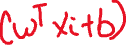 (wᵀxi+b)